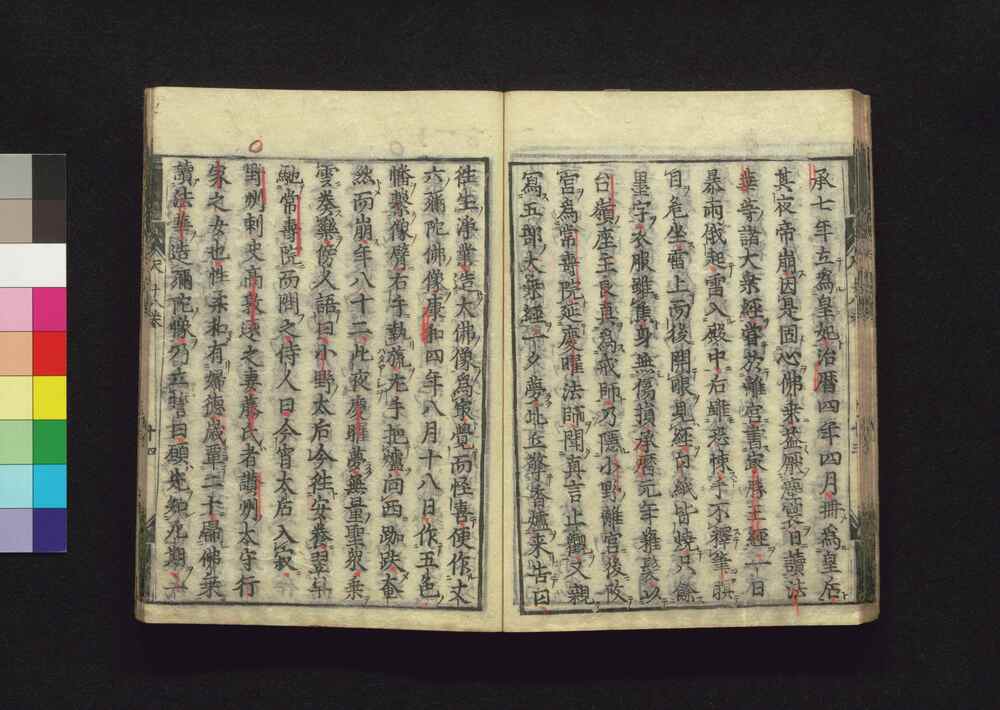 承七年立為皇妃治曆四年四月冊為皇后
其夜帝崩因是固心佛乗益厭塵寰日讀法
華等諸大乗經嘗於離宮書家勝王經一日
暴雨俄起雷入殿中右雖恐悚手不釋筆瞑
目危坐雷上而後開眼見經白紙皆燒只餘
墨字衣服雖焦身無傷損承曆元年薙髮以
台嶺座主良真為戒師乃隱小野離宮後改
宮為常壽院延慶暹法師聞真言止觀又親
寫五部大乗經一夕夢比丘擎香爐来告曰
往生淨業造大佛像為最覺而怪喜便作丈
六彌陀佛像康和四年八月十八日作五色
幡繫像臂右手執旒左手把爐向西跏趺奄
然而崩年八十二此夜慶暹夢無量聖衆乗
雲奏樂傍人語曰小野太后今往安養翌早
馳常壽院而問之侍人曰今宵太后入寂
野州刺史高敦遠之妻藤氏者讃州太守行
家之女也性柔和有婦德歲單二十圖佛乗
讀法華造彌陀像乃立誓曰願先知死期
十四